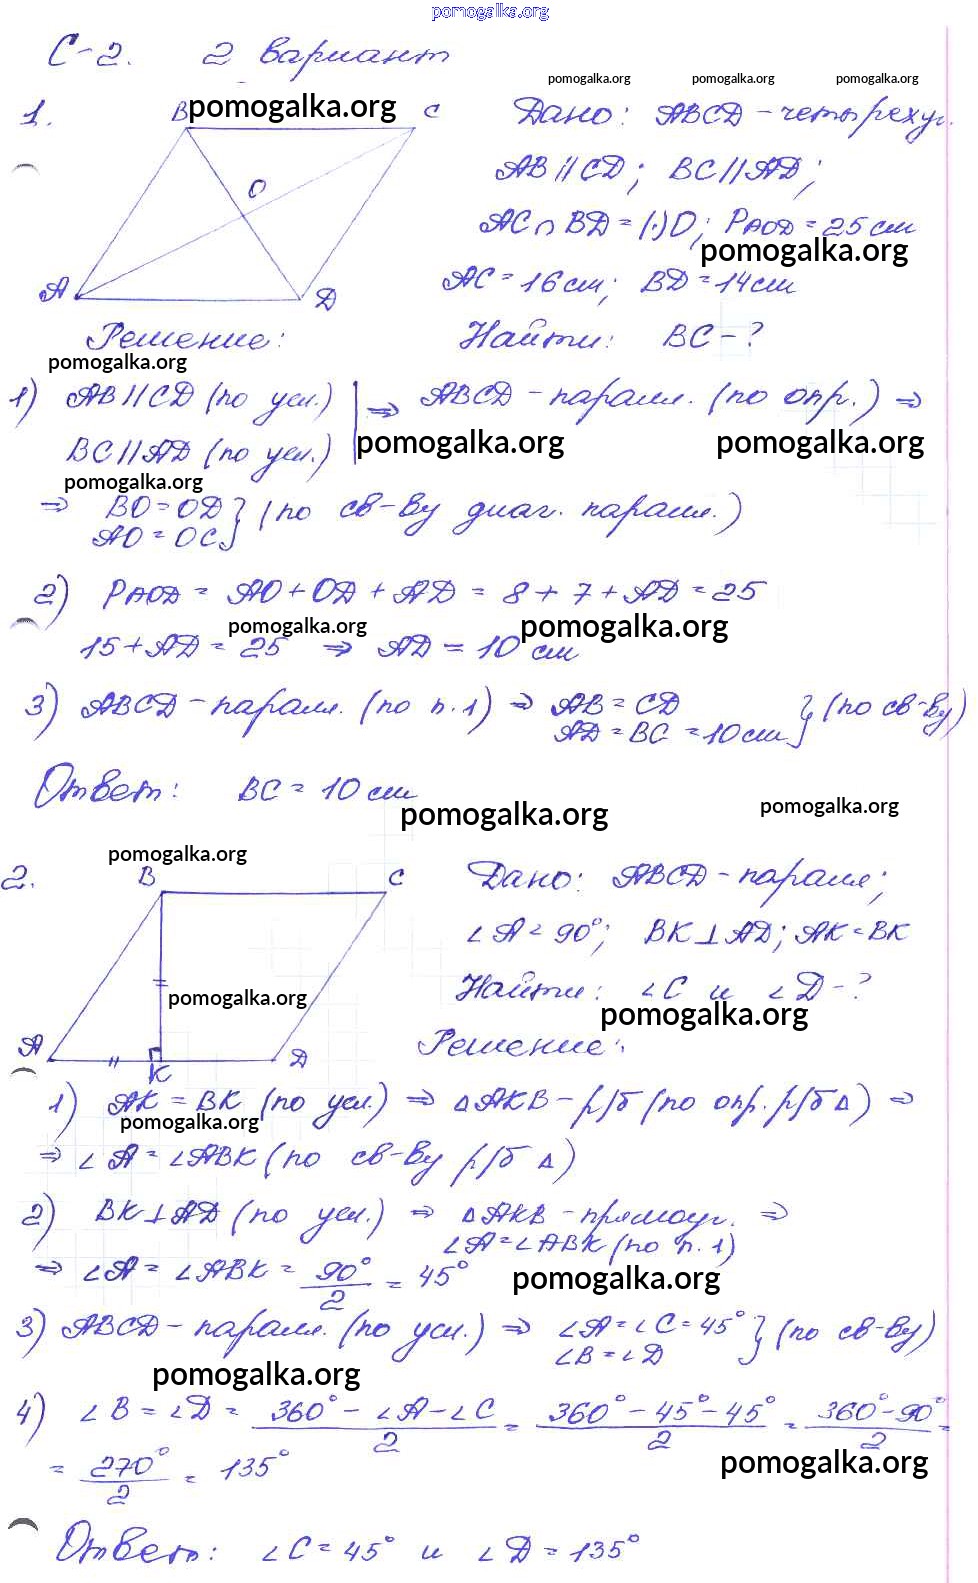 pomogalka.org
С-2. 2 вариант
pomogalka.org pomogalka.org pomogalka.org
1. B pomogalka.org C Дано: ABCD - четырехуг.
O AB || CD; BC || AD;
AC ∩ BD = (·)O; PAOD = 25 см
pomogalka.org
A D AC = 16 см; BD = 14 см
Решение: Найти: BC - ?
pomogalka.org
1) AB || CD (по усл.) ⇒ ABCD - паралл. (по опр.) ⇒
pomogalka.org pomogalka.org
BC || AD (по усл.)
pomogalka.org
⇒ BO = OD } (по св-ву диаг. паралл.)
AO = OC
2) PAOD = AO + OD + AD = 8 + 7 + AD = 25
pomogalka.org pomogalka.org
15 + AD = 25 ⇒ AD = 10 см
3) ABCD - паралл. (по п.1) ⇒ AB = CD } (по св-ву)
AD = BC = 10 см
Ответ: BC = 10 см
pomogalka.org pomogalka.org
pomogalka.org
2. B C Дано: ABCD - паралл;
∠A = 90°; BK ⊥ AD; AK = BK
pomogalka.org Найти: ∠C и ∠D - ?
pomogalka.org
A K D Решение:
1) AK = BK (по усл.) ⇒ △AKB - р/б (по опр. р/б △) ⇒
pomogalka.org
⇒ ∠A = ∠ABK (по св-ву р/б △)
2) BK ⊥ AD (по усл.) ⇒ △AKB - прямоуг. ⇒
∠A = ∠ABK (по п.1)
⇒ ∠A = ∠ABK = 90°/2 = 45°
pomogalka.org
3) ABCD - паралл. (по усл.) ⇒ ∠A = ∠C = 45° } (по св-ву)
∠B = ∠D
pomogalka.org
4) ∠B = ∠D = 360° - ∠A - ∠C/2 = 360° - 45° - 45°/2 = 360° - 90°/2 =
pomogalka.org
= 270°/2 = 135°
Ответ: ∠C = 45° и ∠D = 135°